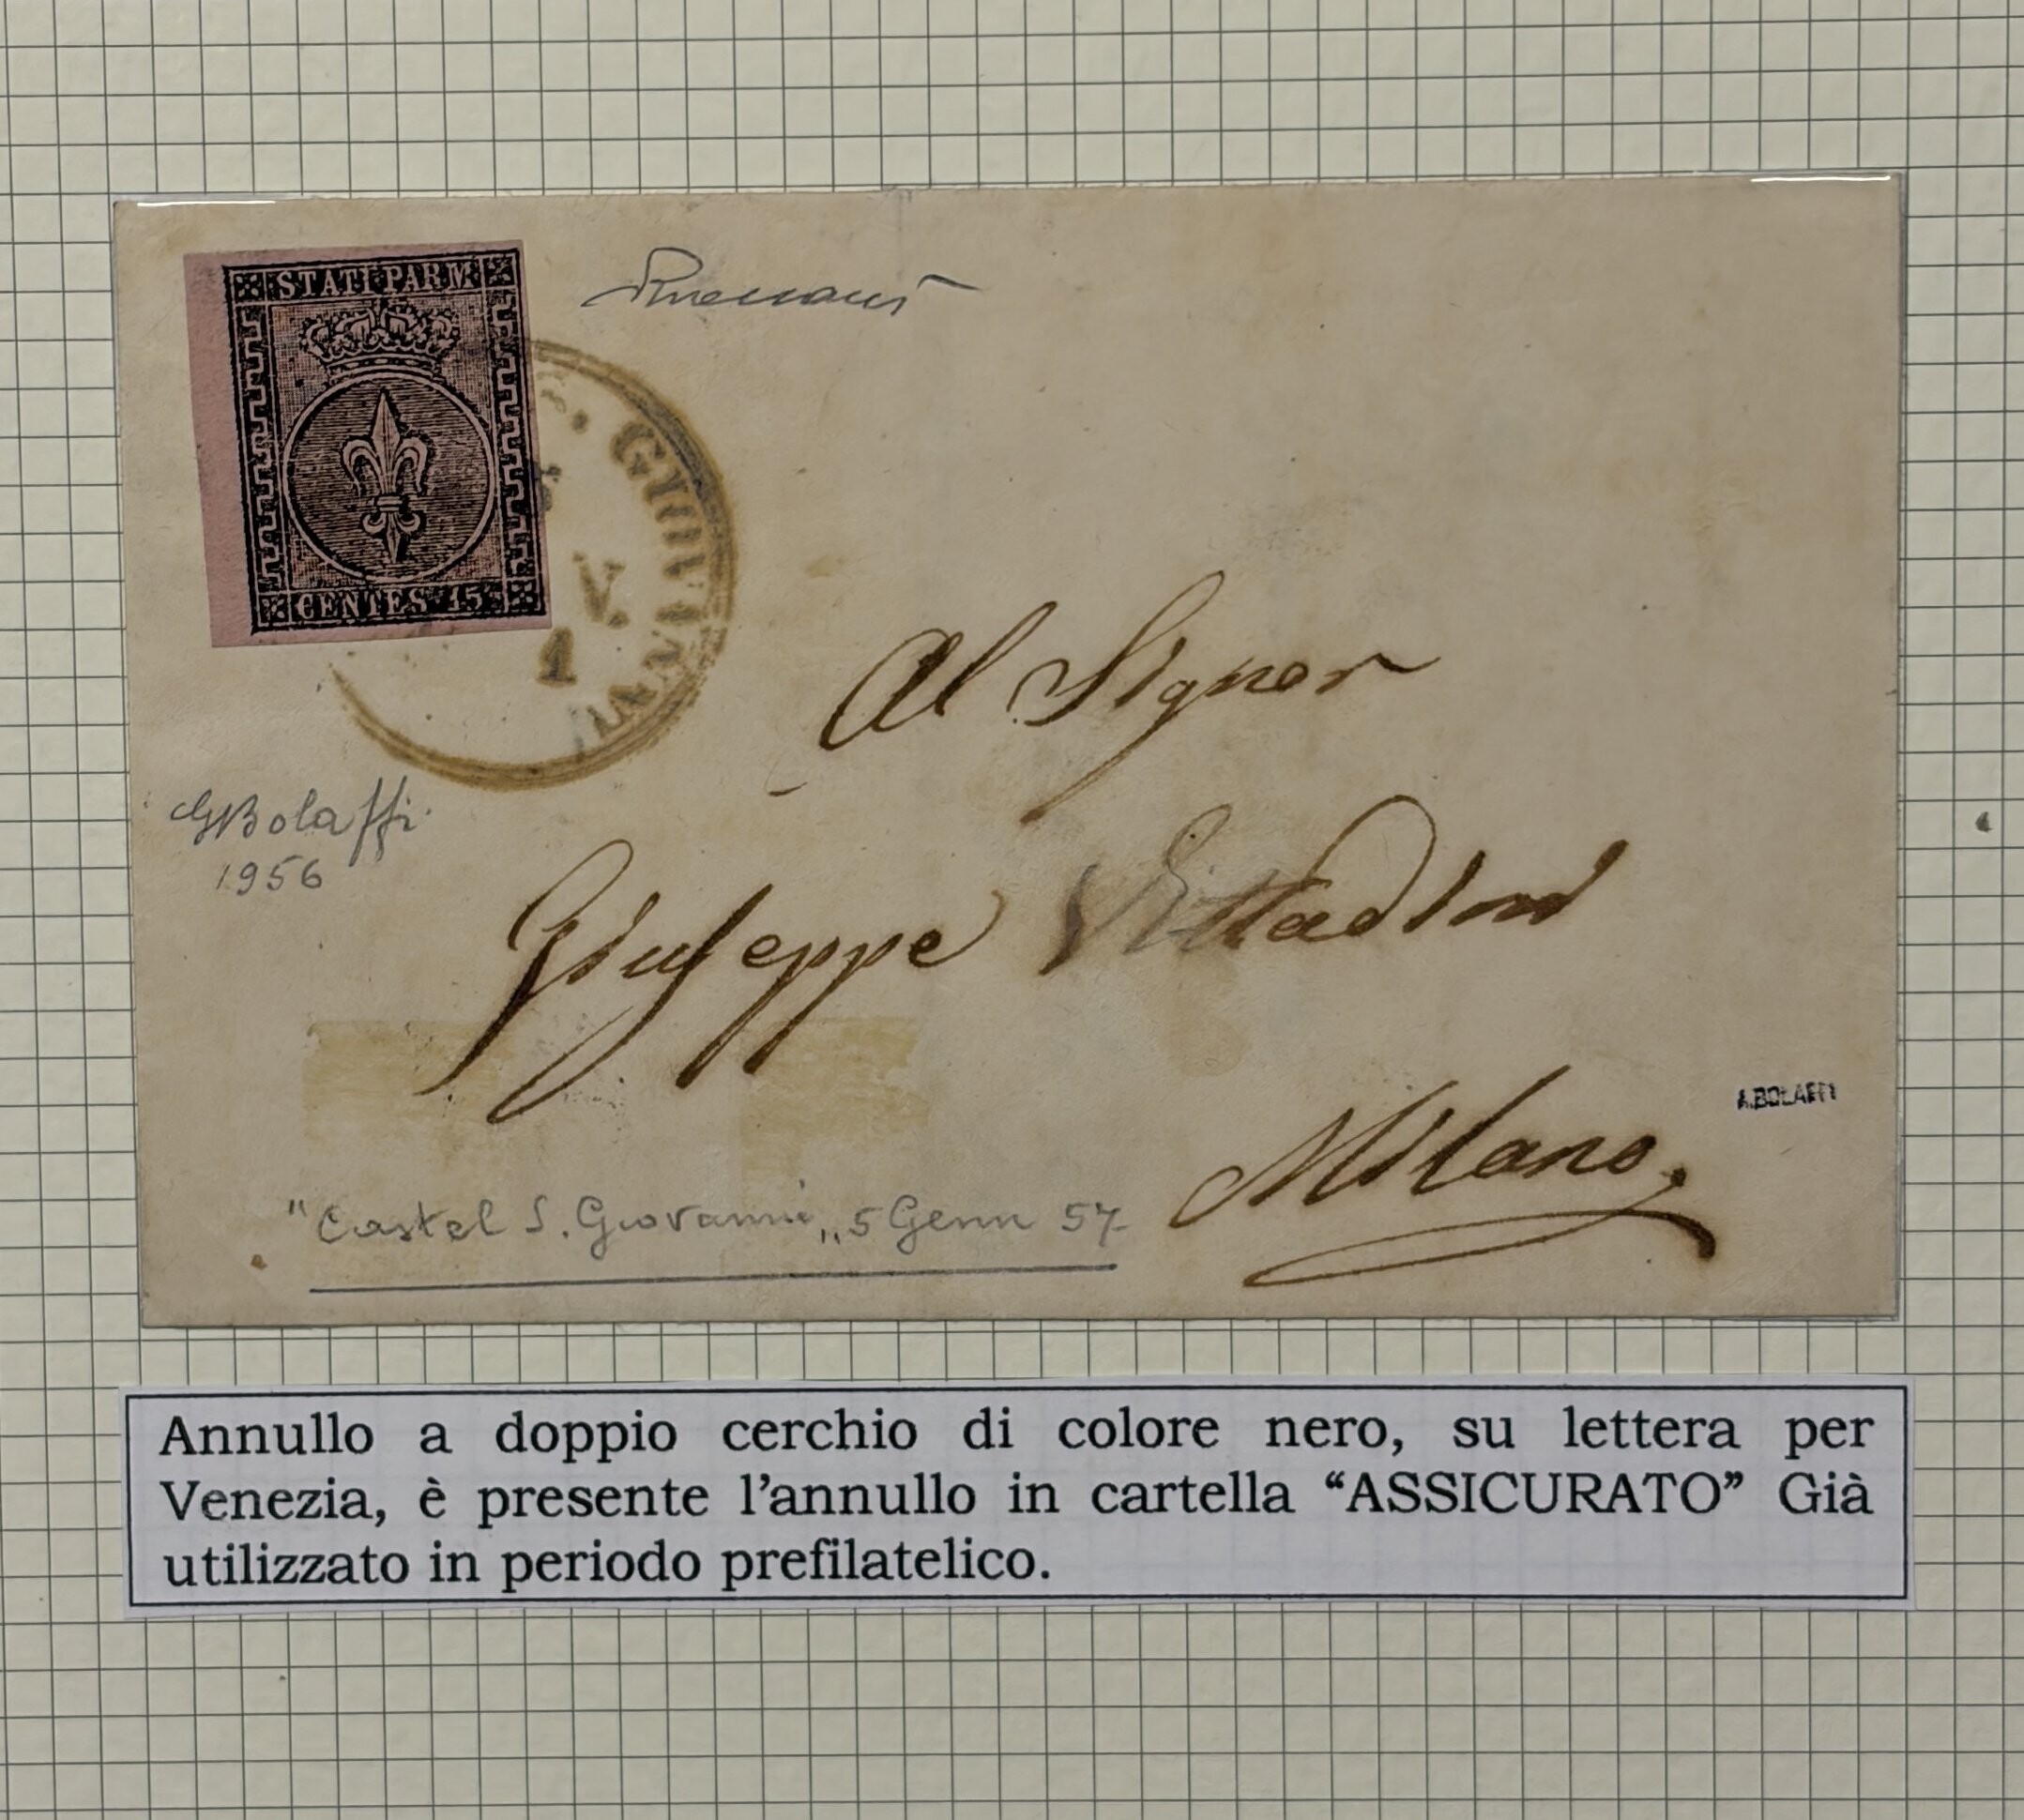 STATI PARM
CENTES 15
. GIOVANNI
V.
1
GBolaffi
1956
Al Signor
Giuseppe Vittadini
Milano.
A.BOLAFFI
"Castel S. Giovanni„ 5 Genn 57
Annullo a doppio cerchio di colore nero, su lettera per
Venezia, è presente l’annullo in cartella “ASSICURATO” Già
utilizzato in periodo prefilatelico.